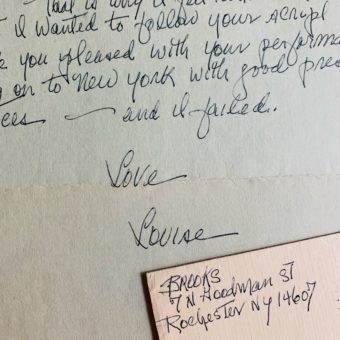 I wanted to follow your script
you pleased with your performa
on to New York with good pre
— and I failed.
Love
Louise
BROOKS
7 N Goodman ST
Rochester NY 14607